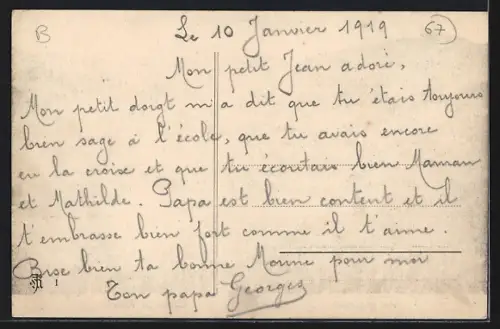 B
Le 10 Janvier 1919
67
Mon petit Jean adoré,
Mon petit doigt m'a dit que tu étais toujours
bien sage à l'école, que tu avais encore
eu la croix et que tu écoutais bien Maman
et Mathilde. Papa est bien content et il
t'embrasse bien fort comme il t'aime.
Bise bien ta bonne Mamie pour moi
1
Ton papa Georges